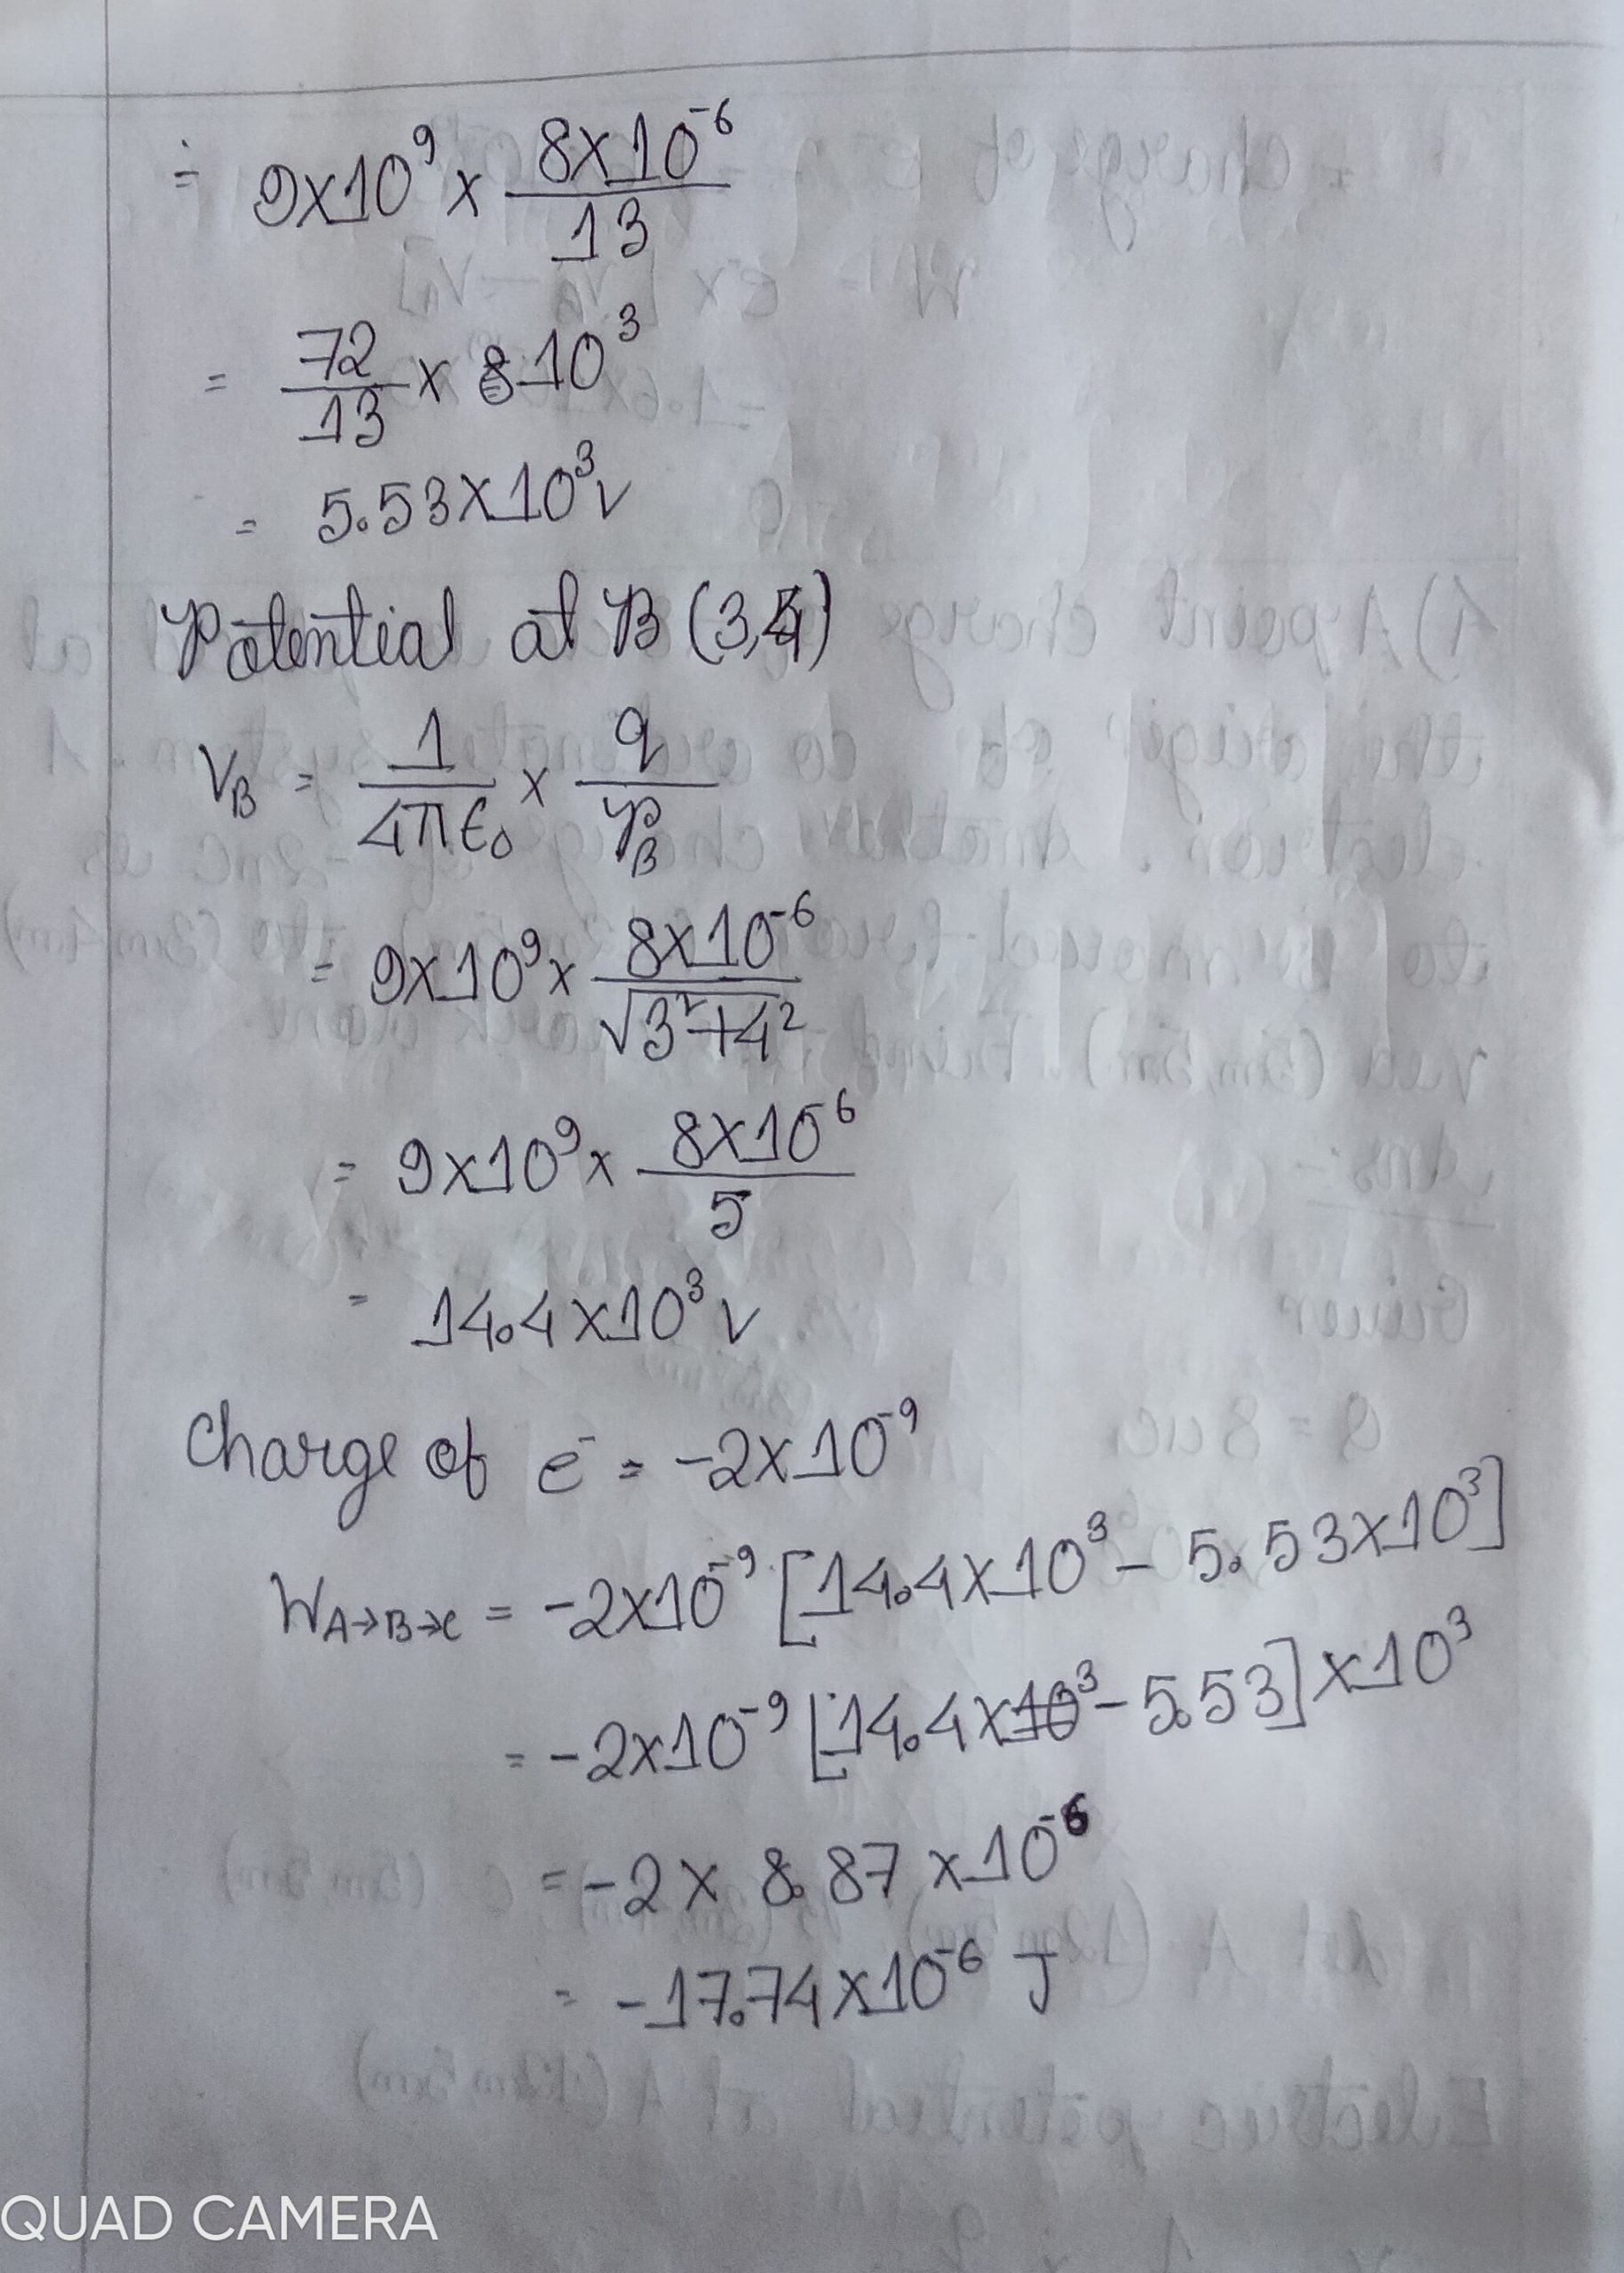 = 9x10⁹ x 8x10⁻⁶/13
= 72/13 x 10³
= 5.53x10³v
Potential at B (3,4)
V_B = 1/4πϵ₀ x q/r_B
= 9x10⁹x 8x10⁻⁶/√3²+4²
= 9x10⁹x 8x10⁻⁶/5
= 14.4x10³v
Charge of e⁻ = -2x10⁻⁹
W_A→B→C = -2x10⁻⁹ [14.4x10³- 5.53x10³]
= -2x10⁻⁹ [14.4x10³- 5.53] x10³
= -2 x 8.87 x10⁻⁶
= -17.74x10⁻⁶ J
QUAD CAMERA